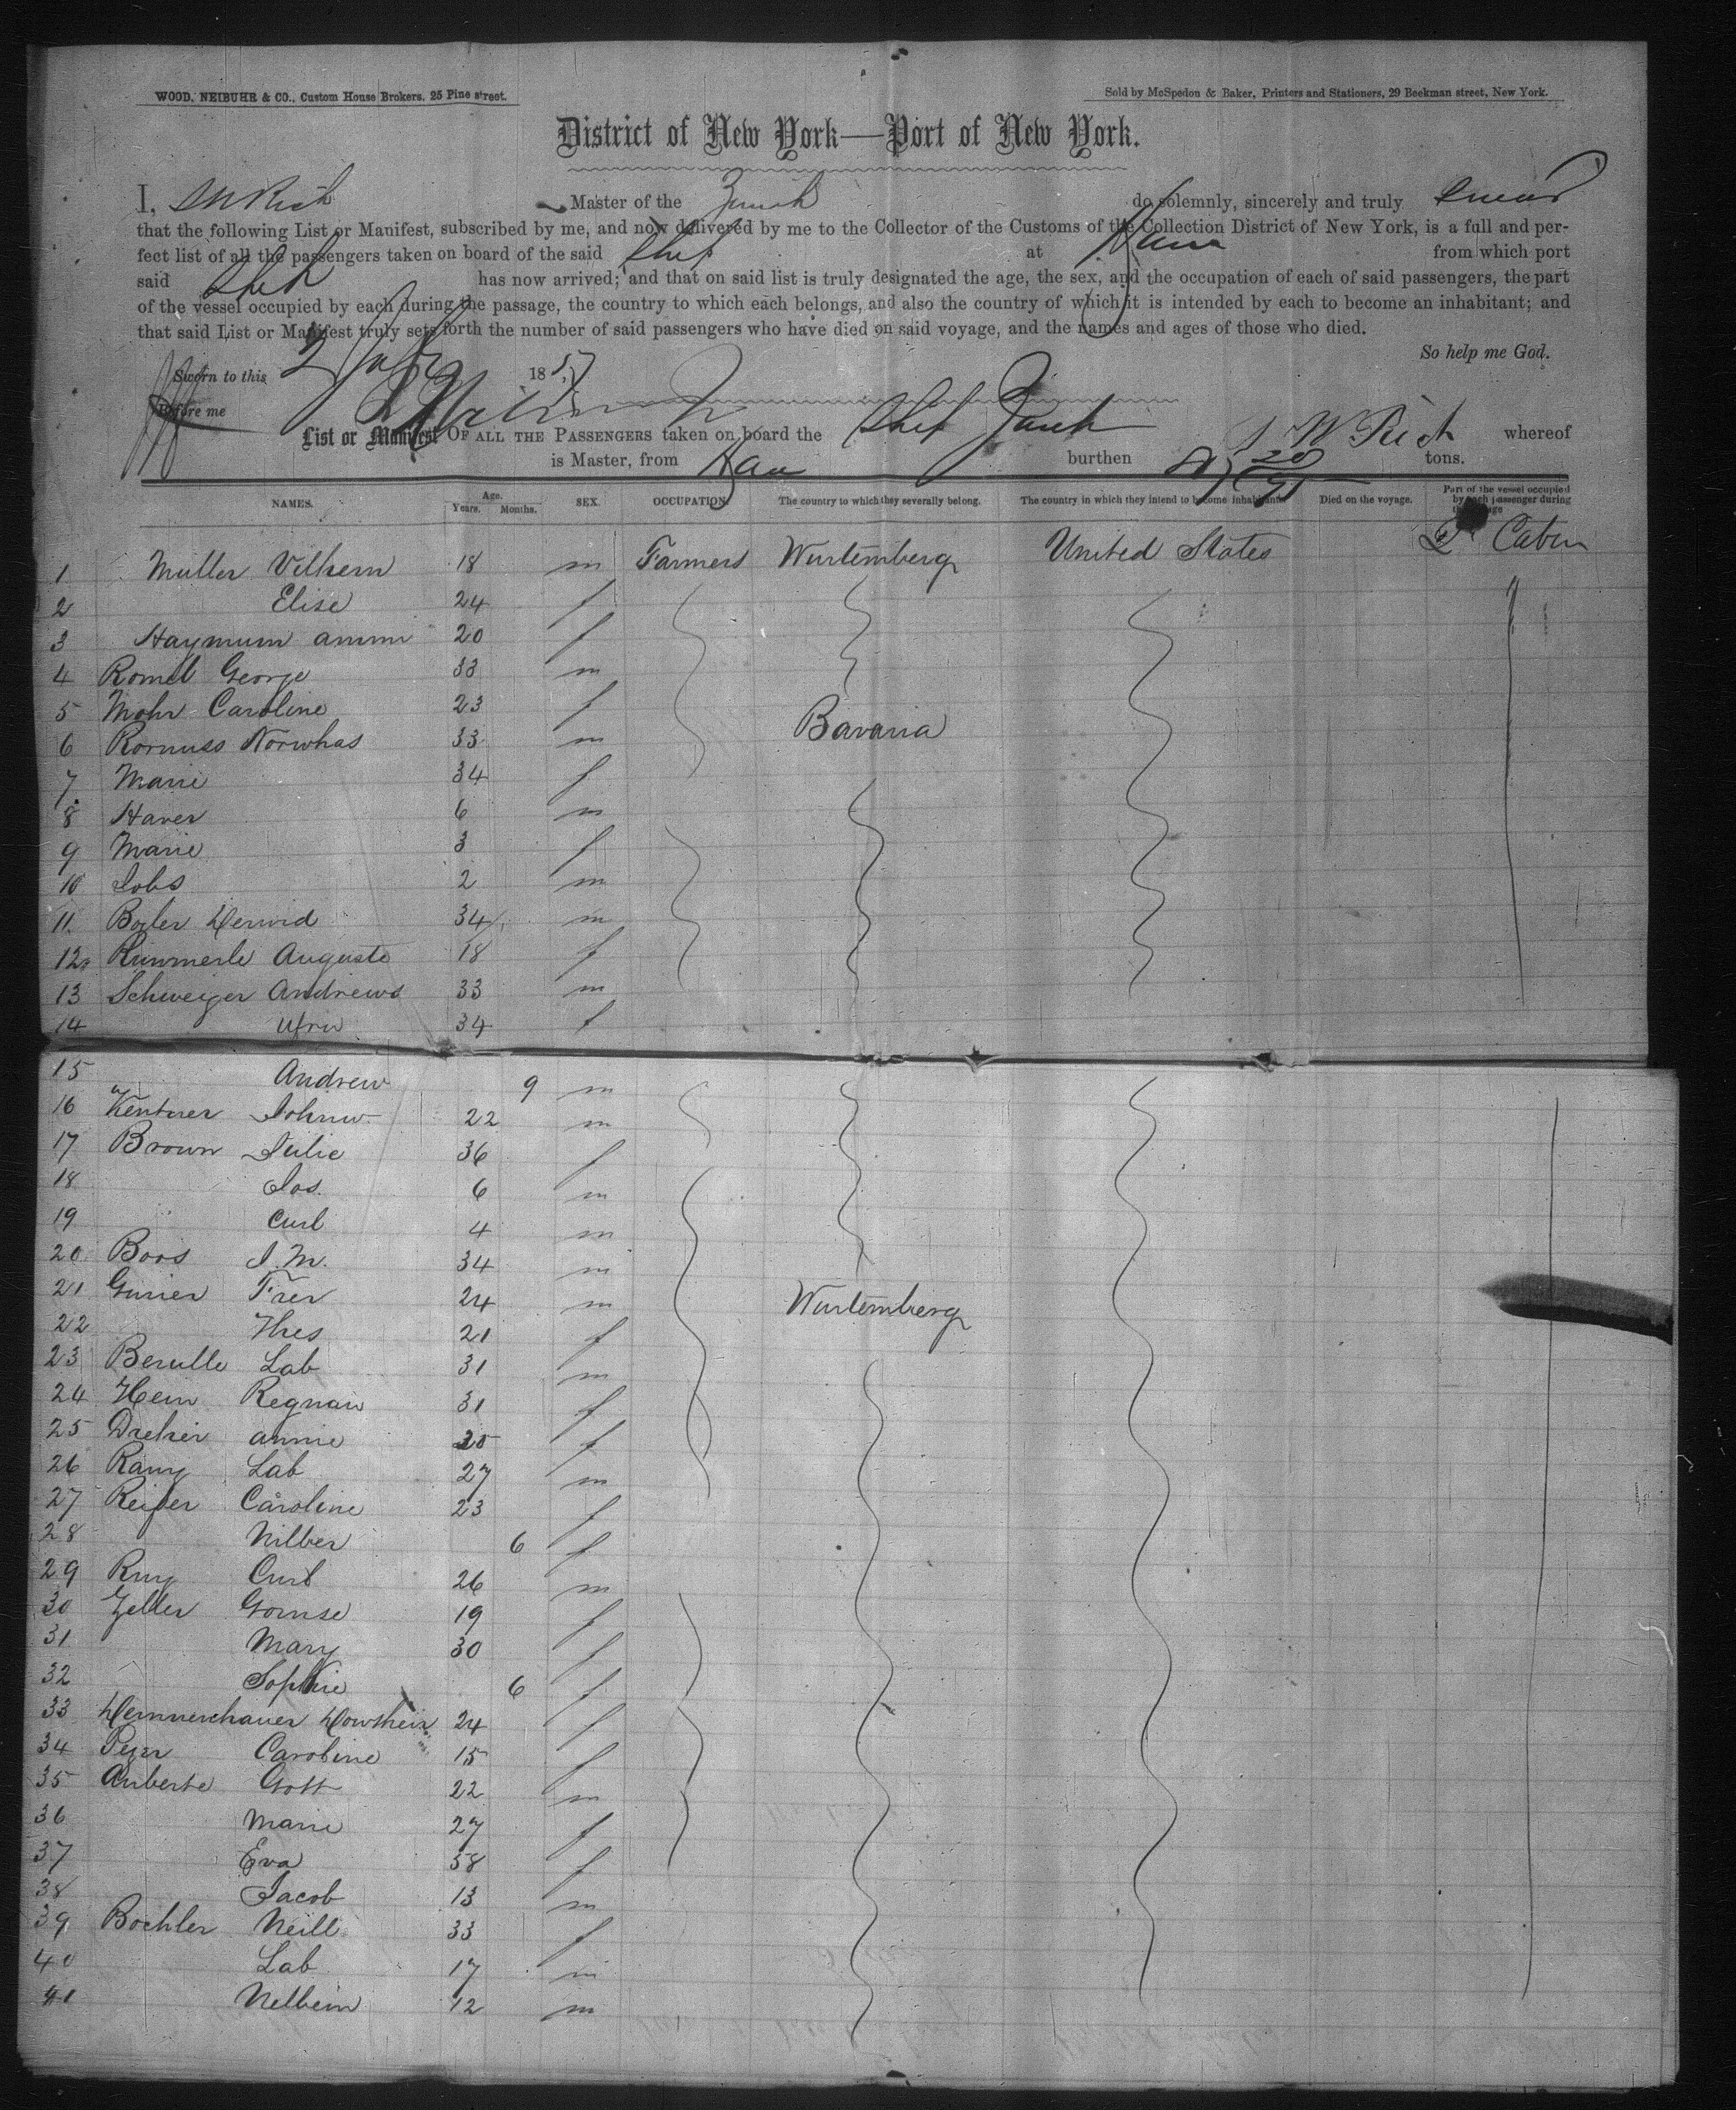 WOOD, NEIBUHR & CO., Custom House Brokers. 25 Pine street.
Sold by McSpedon & Baker, Printers and Stationers, 29 Beekman street, New York.
District of New York—Port of New York.
I, Master of the Zurich do solemnly, sincerely and truly swear
that the following List or Manifest, subscribed by me, and now delivered by me to the Collector of the Customs of the Collection District of New York, is a full and per-
fect list of all the passengers taken on board of the said Ship at Havre from which port
said Ship has now arrived; and that on said list is truly designated the age, the sex, and the occupation of each of said passengers, the part
of the vessel occupied by each during the passage, the country to which each belongs, and also the country of which it is intended by each to become an inhabitant; and
that said List or Manifest truly sets forth the number of said passengers who have died on said voyage, and the names and ages of those who died.
So help me God.
Sworn to this 2 July 1857
Before me
List or Manifest OF ALL THE PASSENGERS taken on board the Ship Zurich W Rich whereof
is Master, from Havre burthen tons.
NAMES. Age. Years. Months. SEX. OCCUPATION The country to which they severally belong. The country in which they intend to become inhabitants. Died on the voyage. Part of the vessel occupied by each passenger during the voyage
1 Muller Vilhem 18 m Farmers Wurtemberg United States Cabin
2 Elise 24 f
3 Haymum 20 f
4 Romel George 33 m
5 Mohr Caroline 23 f
6 Rornuss Norwhas 33 m Bavaria
7 Marie 34 f
8 Haver 6 m
9 Marie 3 f
10 Jobs 2 m
11 Boiler 34 m
12 Rummerle Auguste 18 f
13 Schweiger Andrews 33 m
14 34 f
15 Andrew 9 m
16 Kentner Johnw 22 m
17 Brown Julie 36 f
18 Jos. 6 m
19 Curl 4 m
20 Boos J. M. 34 m
21 Gurier Frer 24 m Wurtemberg
22 Thes 21 f
23 Berulle Lab 31 m
24 Hein Regnau 31 f
25 Dreher annie f
26 Rany Lab 27 m
27 Reifer Caroline 23 f
28 Nilber 6 f
29 Ruy Curl 26 m
30 Zeller Gornse 19 f
31 Mary 30 f
32 Sophie 6 f
33 24 f
34 Caroline 15 f
35 Anberte Gott 22 m
36 Marie 27 f
37 Eva 58 f
38 Jacob 13 m
39 Bochler Neill 33 f
40 Lab 17 m
41 Nelbein 12 m